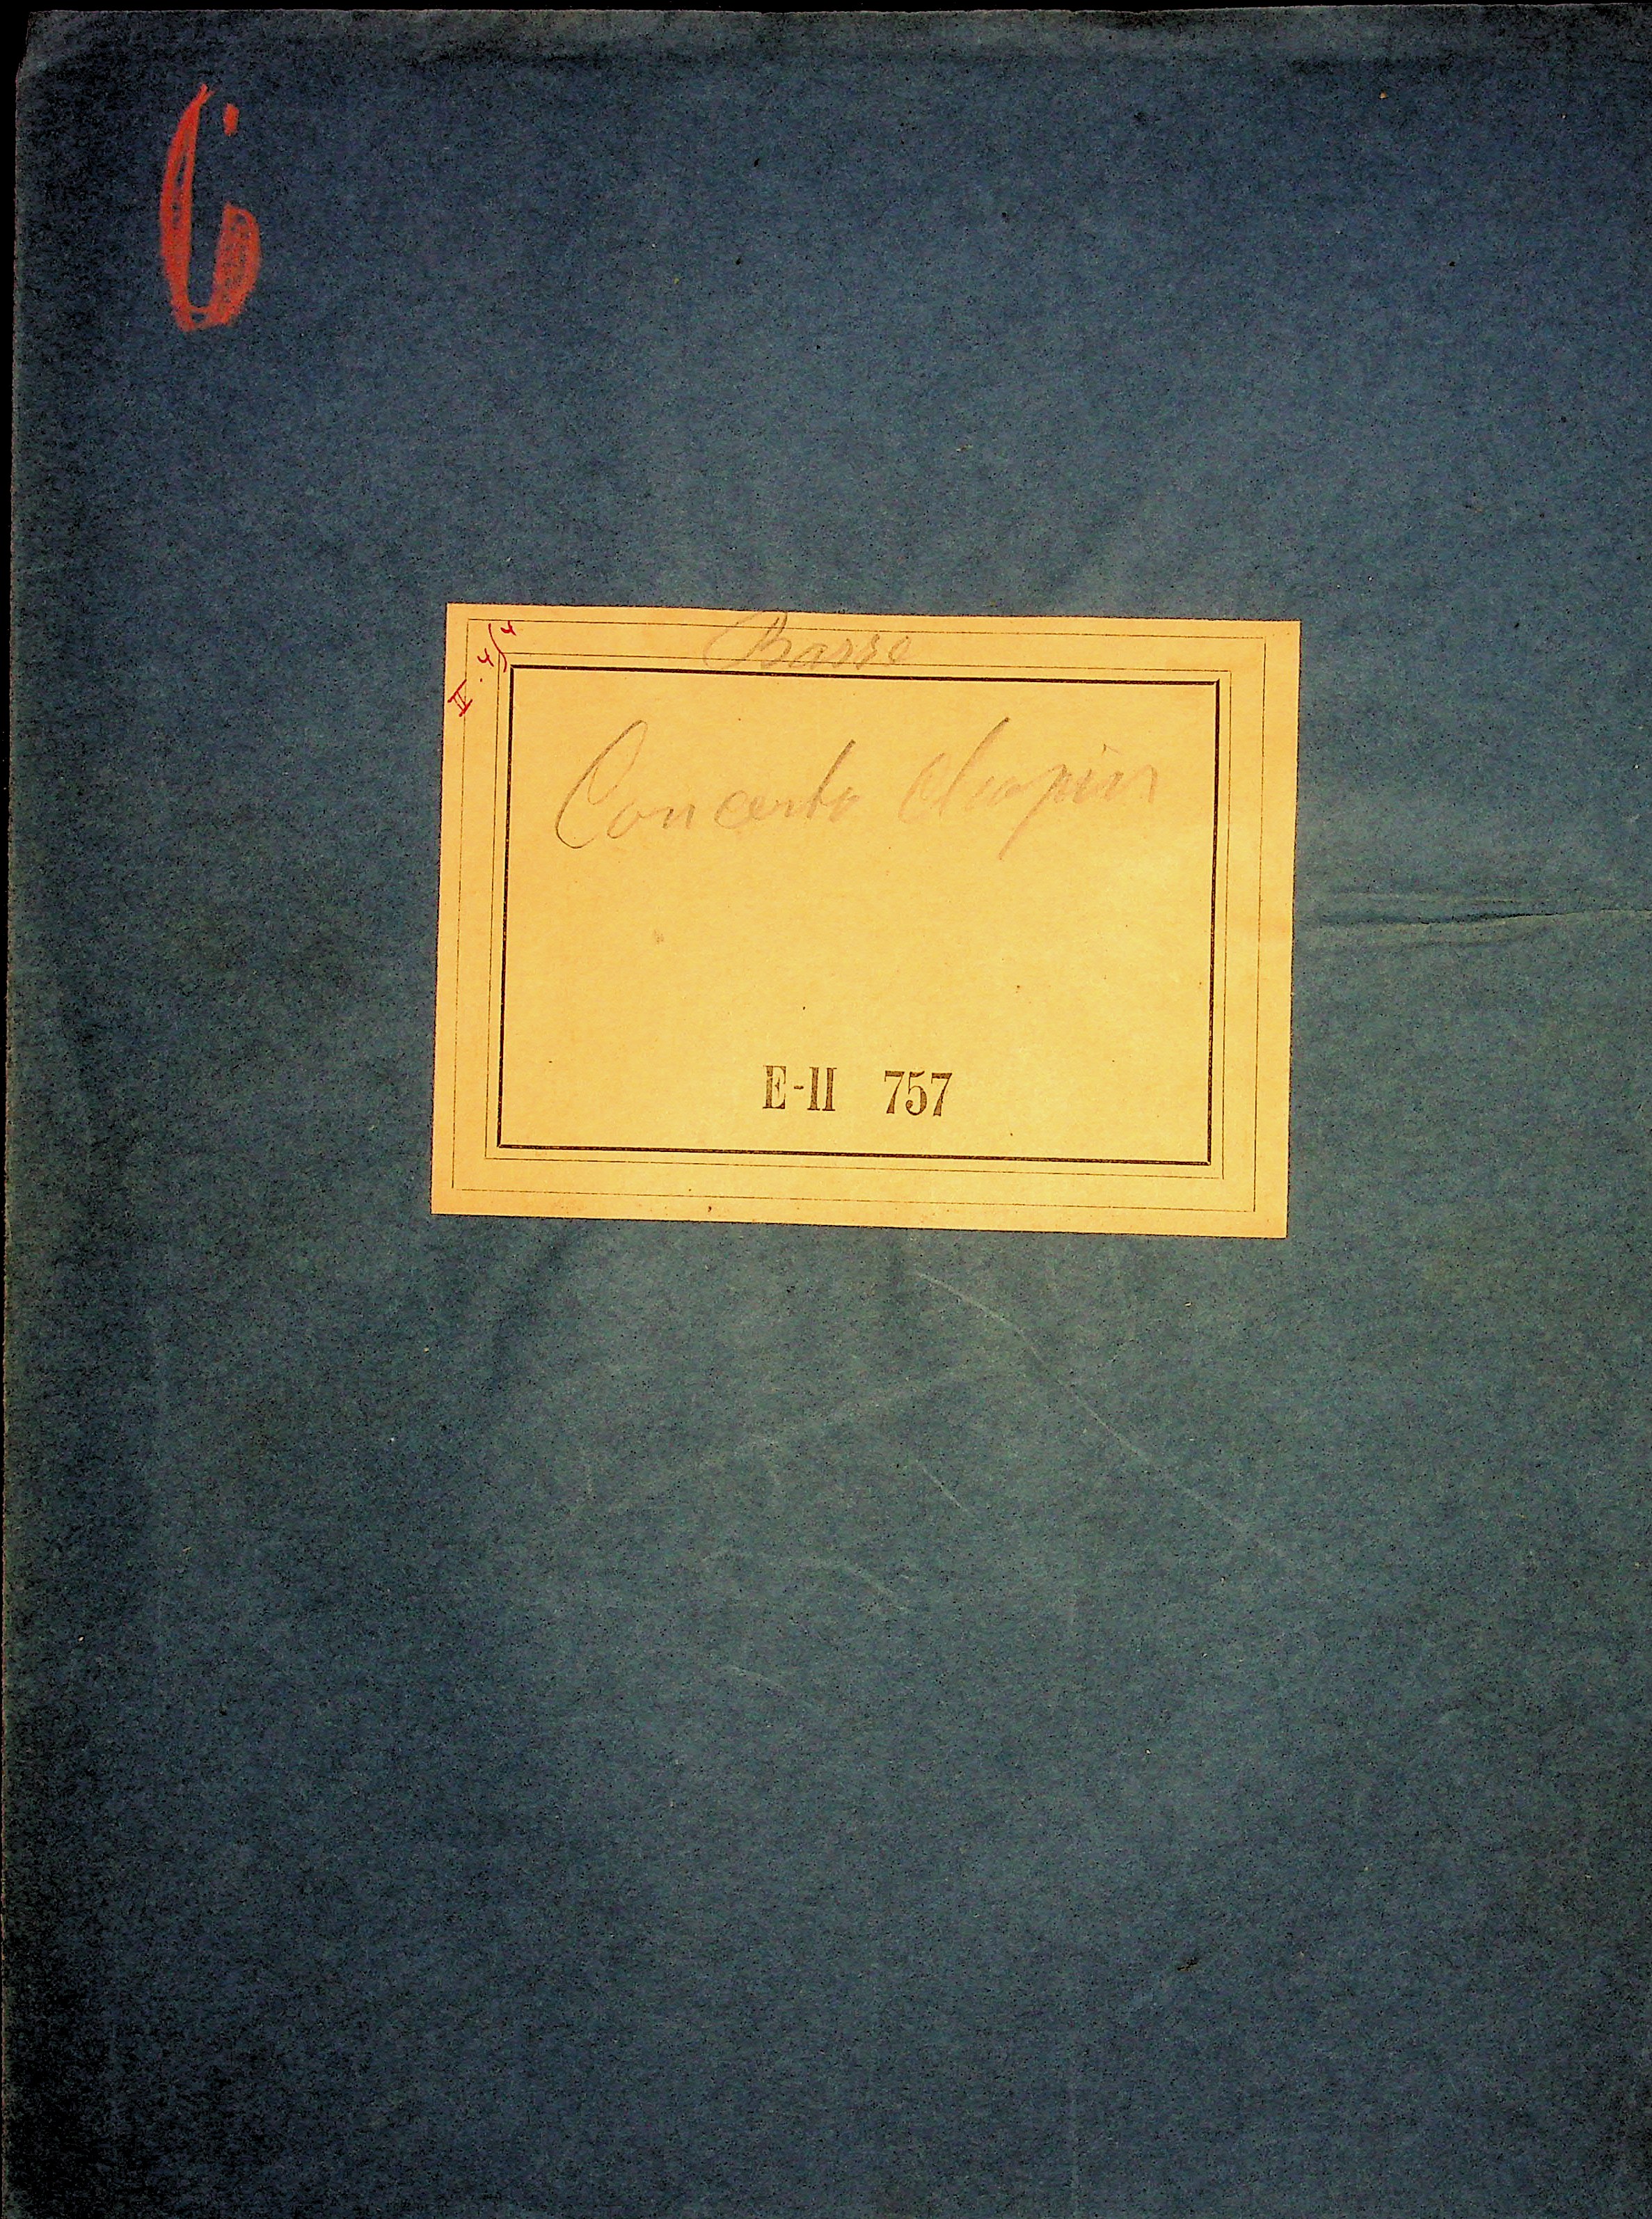 6
Basse
Concerto Chopin
E-II 757